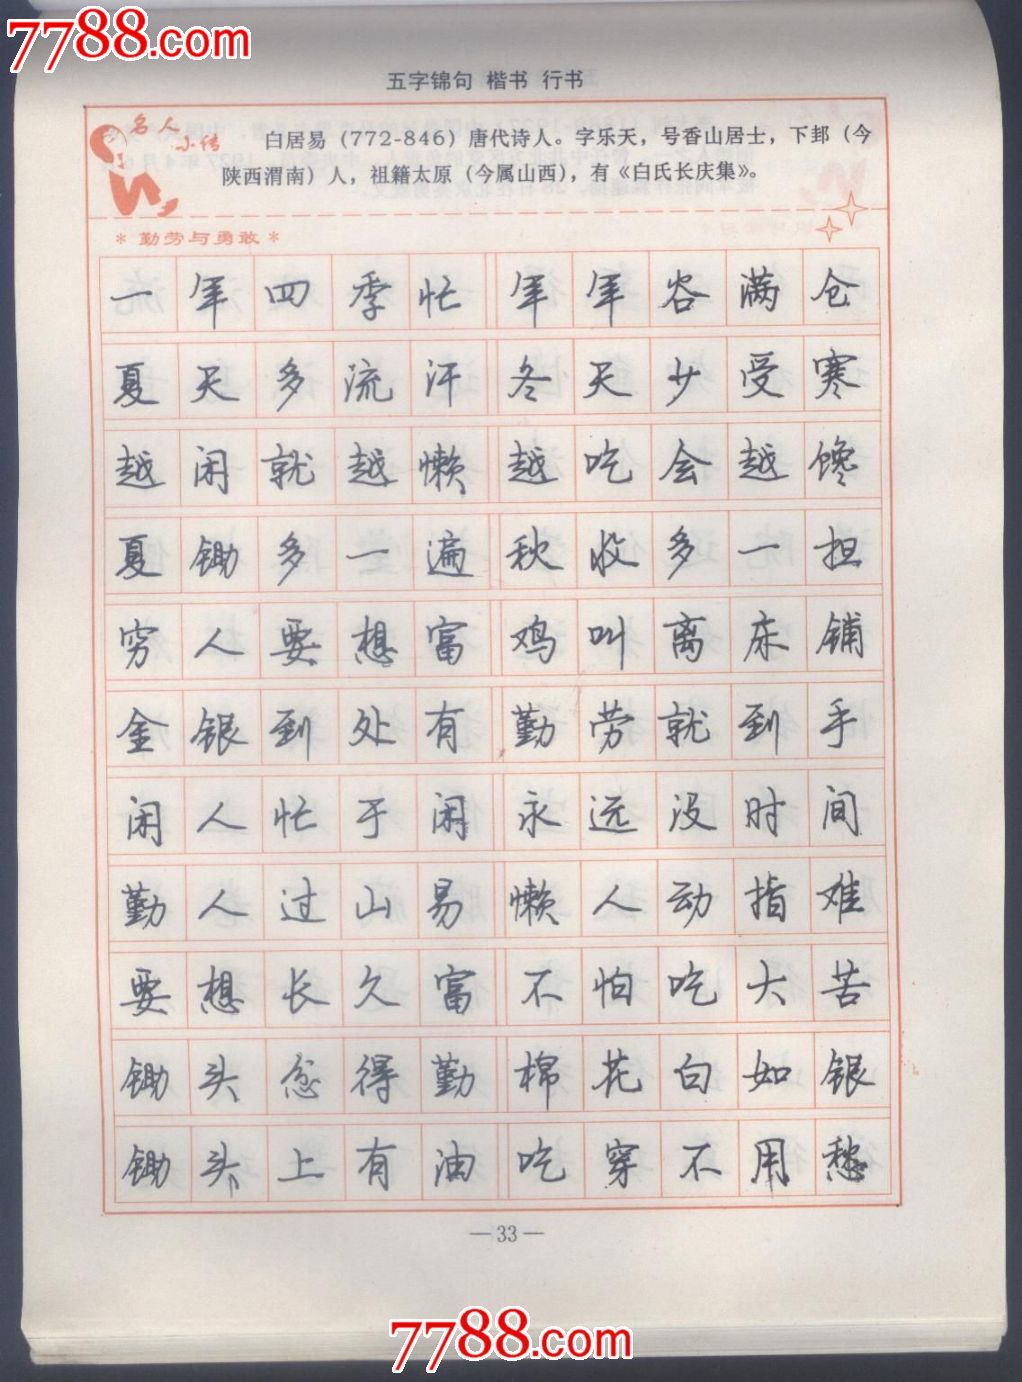 7788.com
五字锦句 楷书 行书
名人小传
白居易（772-846）唐代诗人。字乐天，号香山居士，下邽（今
陕西渭南）人，祖籍太原（今属山西），有《白氏长庆集》。
* 勤劳与勇敢 *
一年四季忙 年年谷满仓
夏天多流汗 冬天少受寒
越闲就越懒 越吃会越馋
夏锄多一遍 秋收多一担
穷人要想富 鸡叫离床铺
金银到处有 勤劳就到手
闲人忙于闲 永远没时间
勤人过山易 懒人动指难
要想长久富 不怕吃大苦
锄头忿得勤 棉花白如银
锄头上有油 吃穿不用愁
—33—
7788.com